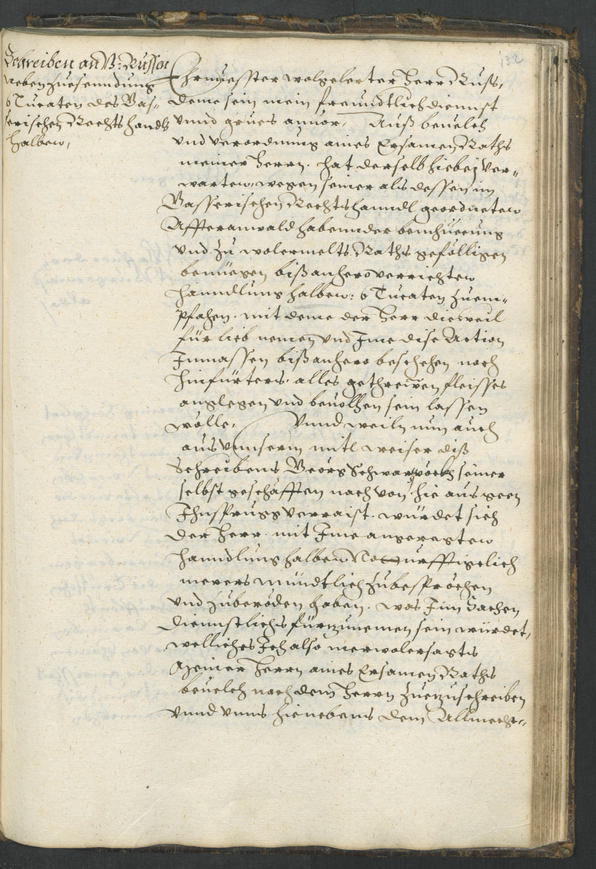 132
Schreiben an H: Russen
neben zuesenndung
6 Ducaten des Bas-
serischen Rechtshandls
halben,
Ehrnuesster wolgelerter Herr Russ,
deme sein mein freundtlich diennst
vnnd grues anuor, Auß beuelch
vnd verordnung aines Ersamen Raths
meiner Herrn, hat derselb hiebej ver-
warten, wegen seiner als dessen im
Basserischen Rechtshanndl geordneten
Affteranwald habennder bemhüeung
vnd zu wolermelts Raths gefölligen
benüegen bißanhero verrichten
hanndlung halben, 6 Ducaten zuem-
pfahen, mit deme der Herr dieweil
für lieb nemen vnd Ime dise Action
Inmassen bißanhero beschehen, noch
hinfürters alles gethrewen fleisses
anglegen vnd beuolhen sein lassen
wolle, Vnnd weiln nun auch
aus vnnserm mitl weiser diß
Schreibens Georg Schwarzockh seiner
selbst geschäfften nach von hie aus geen
Ihnsprugg verraist, würdet sich
der Herr mit Ime angeregten
hanndlung halben Notturfftigclich
merers mündtlich zubesprechen
vnd zuberöden haben, was Inn sachen
diennstlichs fürzunemen sein würdet,
wölliches Ich also merwolersagts
Meiner Herrn aines Ersamen Raths
beuelch nach dem Herrn zuezuschreiben
vnnd vnns hienebens dem Allmecht-